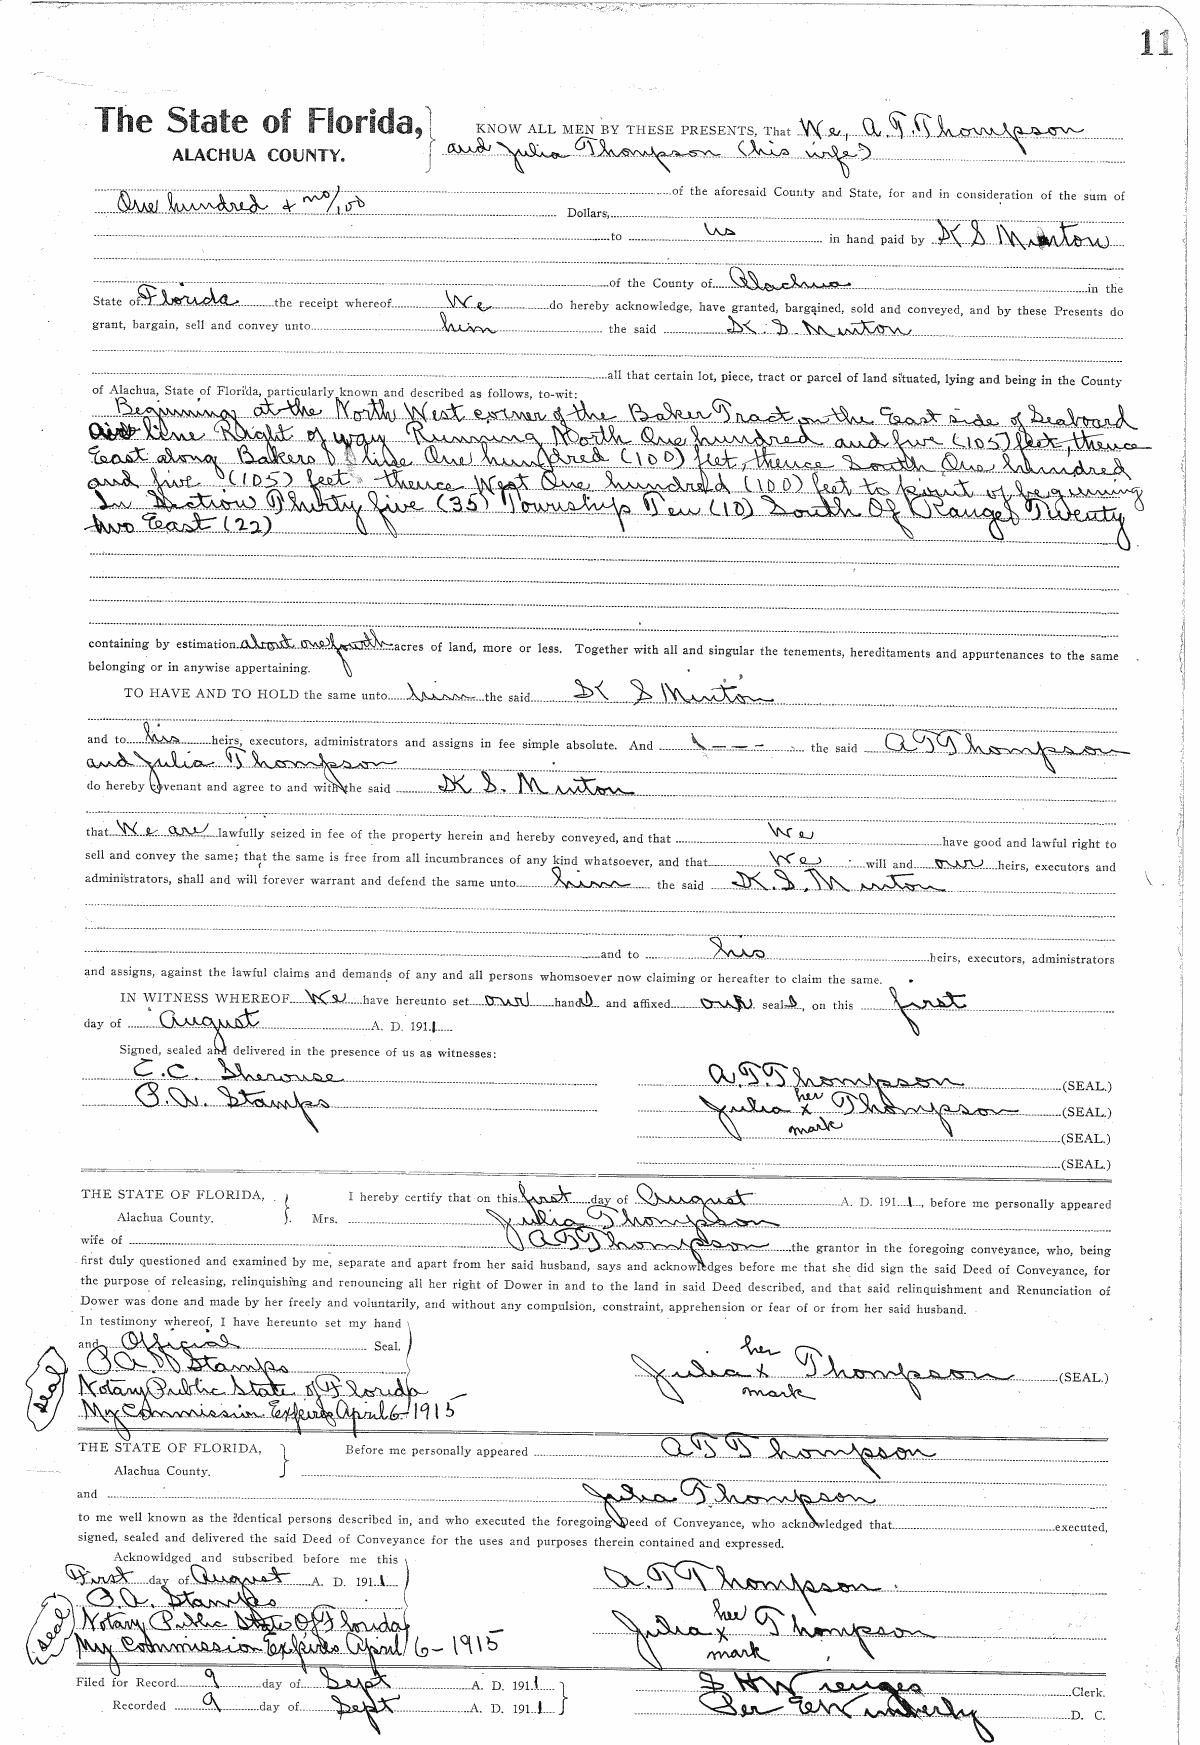 11
The State of Florida, KNOW ALL MEN BY THESE PRESENTS, That We, A.T. Thompson
ALACHUA COUNTY. and Julia Thompson (his wife)
of the aforesaid County and State, for and in consideration of the sum of
One hundred + no/100 Dollars,
to us in hand paid by K S Minton
of the County of Alachua in the
State of Florida the receipt whereof We do hereby acknowledge, have granted, bargained, sold and conveyed, and by these Presents do
grant, bargain, sell and convey unto him the said K. S. Minton
all that certain lot, piece, tract or parcel of land situated, lying and being in the County
of Alachua, State of Florida, particularly known and described as follows, to-wit:
Beginning at the North West corner of the Baker Tract on the East side of Seaboard
Air line Right of way Running North One hundred and five (105) feet, thence
East along Bakers line One hundred (100) feet, thence South One hundred
and five (105) feet thence West One hundred (100) feet to point of beginning
In Section Thirty five (35) Township Ten (10) South Of Range Twenty
two East (22)
containing by estimation about one fourth acres of land, more or less. Together with all and singular the tenements, hereditaments and appurtenances to the same
belonging or in anywise appertaining.
TO HAVE AND TO HOLD the same unto him the said K S Minton
and to his heirs, executors, administrators and assigns in fee simple absolute. And \--- the said A T Thompson
and Julia Thompson
do hereby covenant and agree to and with the said K S. Minton
that We are lawfully seized in fee of the property herein and hereby conveyed, and that We have good and lawful right to
sell and convey the same; that the same is free from all incumbrances of any kind whatsoever, and that We will and our heirs, executors and
administrators, shall and will forever warrant and defend the same unto him the said K. S. Minton
and to his heirs, executors, administrators
and assigns, against the lawful claims and demands of any and all persons whomsoever now claiming or hereafter to claim the same.
IN WITNESS WHEREOF We have hereunto set our hands and affixed our seals, on this first
day of August A. D. 1911
Signed, sealed and delivered in the presence of us as witnesses:
E.C. Sherouse A.T. Thompson (SEAL.)
P.A. Stamps Julia her x mark Thompson (SEAL.)
(SEAL.)
(SEAL.)
THE STATE OF FLORIDA, I hereby certify that on this first day of August A. D. 1911, before me personally appeared
Alachua County. Mrs. Julia Thompson
wife of A T Thompson the grantor in the foregoing conveyance, who, being
first duly questioned and examined by me, separate and apart from her said husband, says and acknowledges before me that she did sign the said Deed of Conveyance, for
the purpose of releasing, relinquishing and renouncing all her right of Dower in and to the land in said Deed described, and that said relinquishment and Renunciation of
Dower was done and made by her freely and voluntarily, and without any compulsion, constraint, apprehension or fear of or from her said husband.
In testimony whereof, I have hereunto set my hand
and Official Seal.
P.A. Stamps Julia her x mark Thompson (SEAL.)
seal
Notary Public State of Florida
My Commission Expires April 6-1915
THE STATE OF FLORIDA, Before me personally appeared A T Thompson
Alachua County.
and Julia Thompson
to me well known as the identical persons described in, and who executed the foregoing Deed of Conveyance, who acknowledged that executed,
signed, sealed and delivered the said Deed of Conveyance for the uses and purposes therein contained and expressed.
Acknowldged and subscribed before me this
First day of August A. D. 1911 A. T Thompson
P.A. Stamps
seal
Notary Public State Of Florida Julia her x mark Thompson
My Commission Expires April 6-1915
Filed for Record 9 day of Sept A. D. 1911 S H Wienges Clerk.
Recorded 9 day of Sept A. D. 1911 Per E Wimberly D. C.